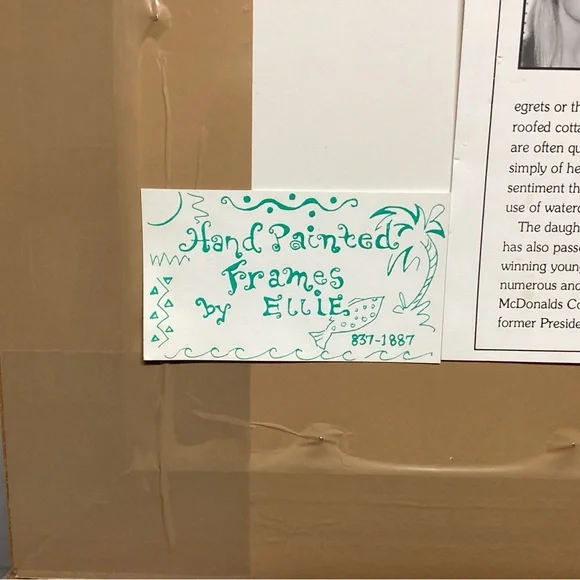 Hand Painted
Frames
by ELLIE
837-1887
egrets or th
roofed cotta
are often qu
simply of he
sentiment th
use of waterc
The daugh
has also passe
winning young
numerous and
McDonalds Co
former Preside